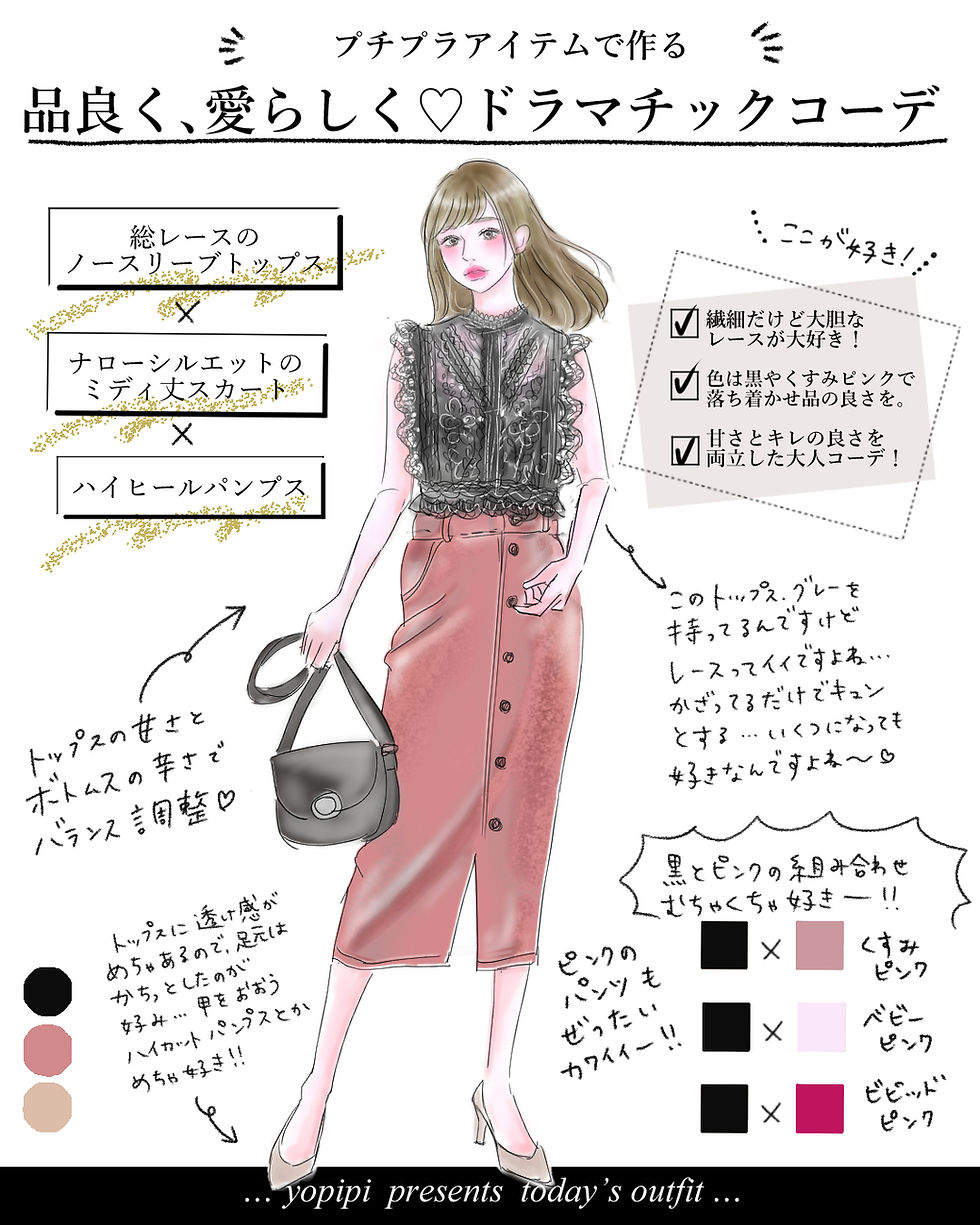 プチプラアイテムで作る
品良く、愛らしく♡ドラマチックコーデ
総レースの
ノースリーブトップス
×
ナローシルエットの
ミディ丈スカート
×
ハイヒールパンプス
ここが好き!
繊細だけど大胆な
レースが大好き！
色は黒やくすみピンクで
落ち着かせ品の良さを。
甘さとキレの良さを
両立した大人コーデ！
このトップス、グレーを
持ってるんですけど
レースってイイですよね…
かざってるだけでキュン
とする…いくつになっても
好きなんですよね〜♡
トップスの甘さと
ボトムスの辛さで
バランス調整♡
トップスに透け感が
めちゃあるので、足元は
かちっとしたのが
好み…甲をおおう
ハイカットパンプスとか
めちゃ好き!!
ピンクの
パンツも
ぜったい
カワイイー!!
黒とピンクの組み合わせ
むちゃくちゃ好きー!!
×
くすみ
ピンク
×
ベビー
ピンク
×
ビビッド
ピンク
... yopipi presents today's outfit ...